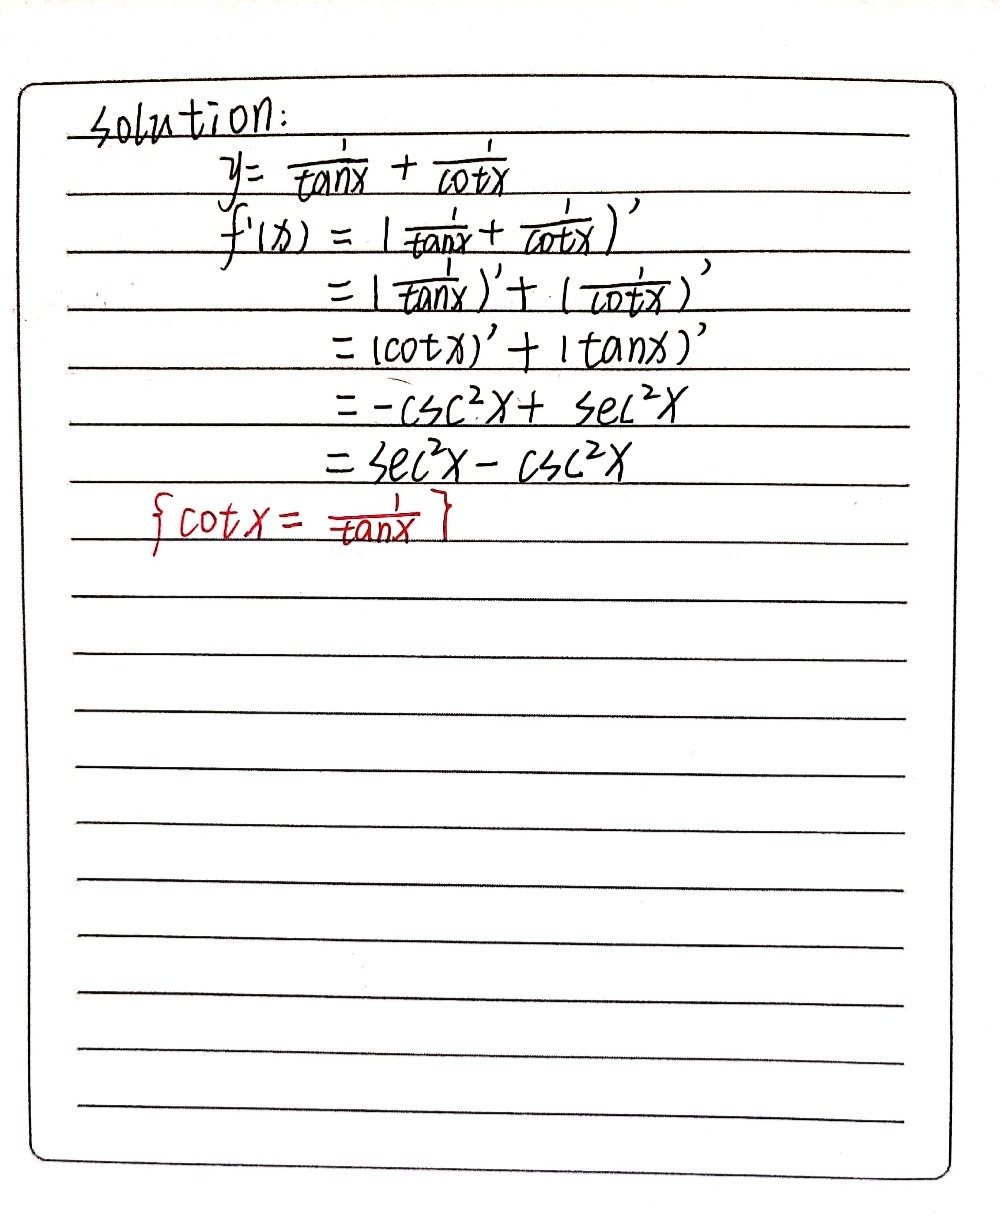 solution:
y = 1/tanx + 1/cotx
f'(x) = (1/tanx + 1/cotx)'
= (1/tanx)' + (1/cotx)'
= (cotx)' + (tanx)'
= -csc²x + sec²x
= sec²x - csc²x
{cotx = 1/tanx}